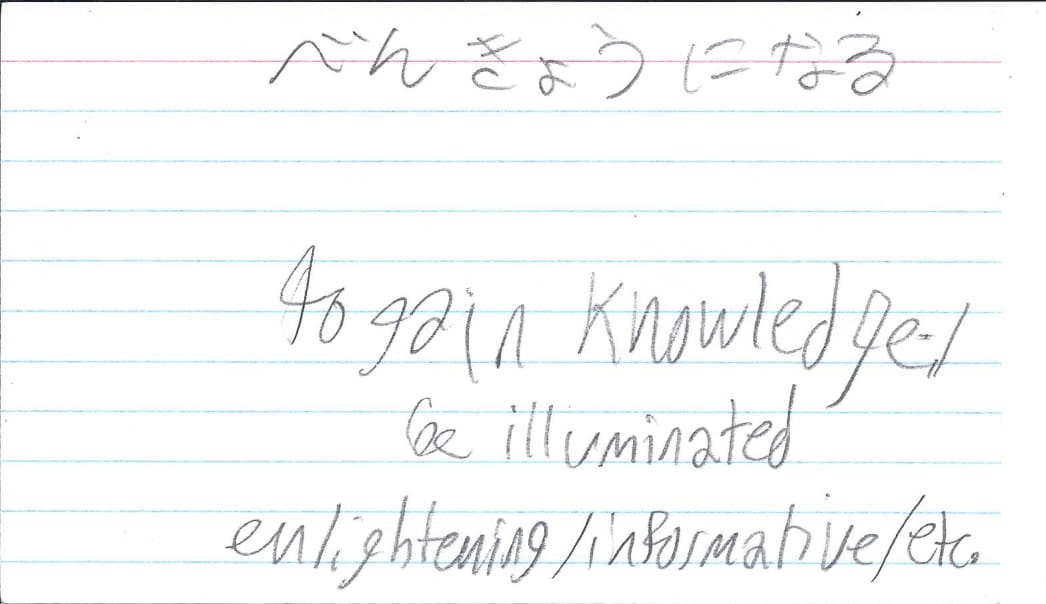 べんきょうになる
to gain knowledge/
be illuminated
enlightening/informative/etc.